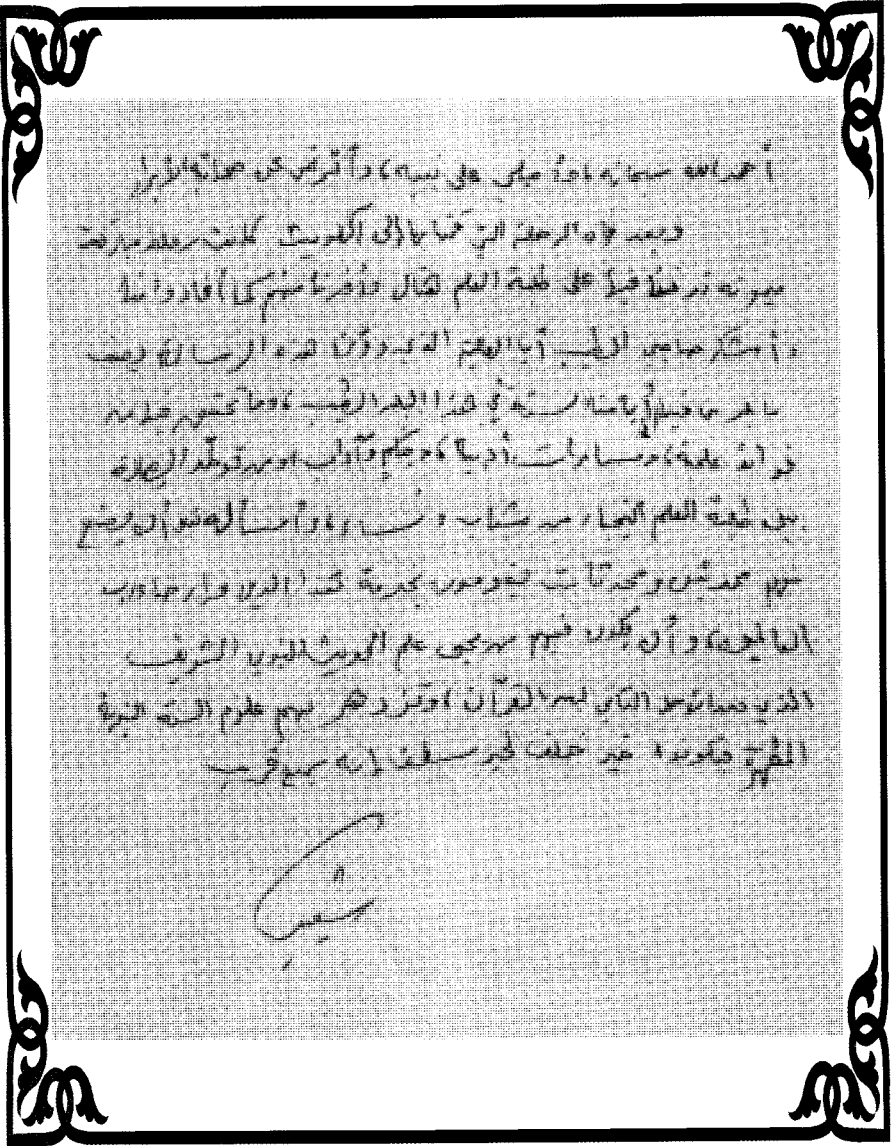 أحمد الله سبحانه، وأصلي على نبيه، وأترضى عن صحابته الأبرار
وبعد فإن الرحلة التي قمنا بها إلى الكويت كانت رحلة مباركة
ميمونة تعرفنا فيها على طلبة العلم هناك وأفدنا منهم كما أفادوا منا
وأشكر صاحبي الذي دوّن هذه الرسالة يصف
ما جرى فيها في هذا البلد الطيب، وما
فوائد علمية، ومسامرات أدبية، وحِكَم وآداب، ومن توطّد الصلات
بين طلبة العلم النجباء من شباب و، وأسأل الله أن يصنع
منهم محدثين ومحدثات يقومون بخدمة هذا الدين
العالمين، وأن يكون فيهم من يحيي علم الحديث النبوي الشريف
الذي هو الثاني بعد القرآن، وتزدهر بهم علوم السنة النبوية
المطهرة فيكونوا خير خلف لخير سلف إنه سميع قريب
شعيب